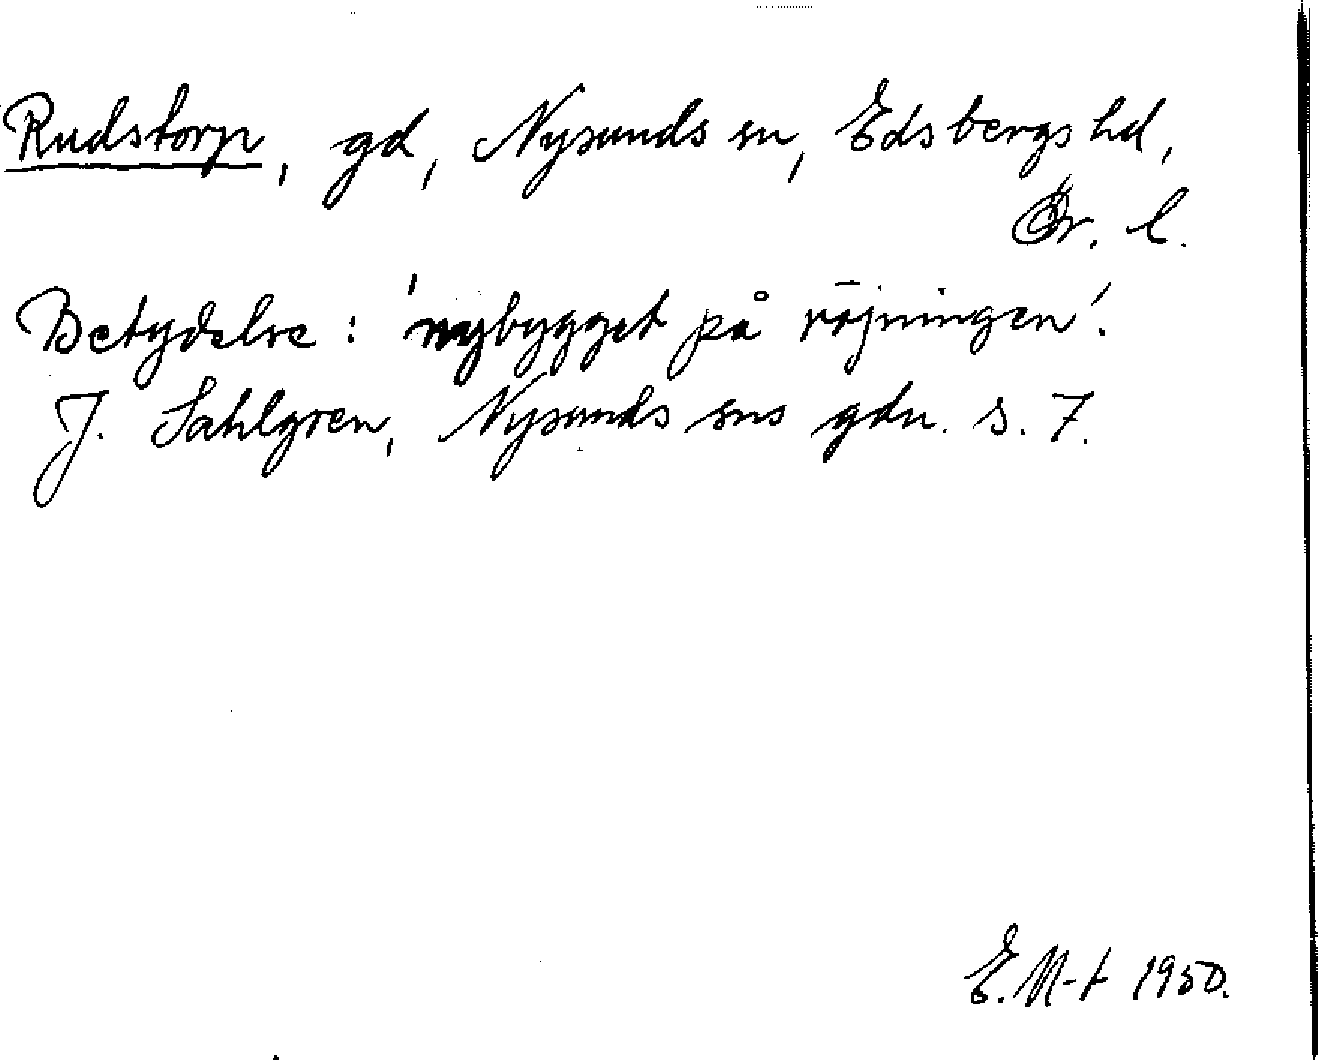 Rudstorp, gd, Nysunds sn, Edsbergs hd,
Ör. l.
Betydelse: 'nybygget på röjningen'.
J. Sahlgren, Nysunds sns gdn. s. 7.
E. M-t 1950.